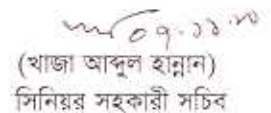 ০৭.১১.২০
(খাজা আব্দুল হান্নান)
সিনিয়র সহকারী সচিব